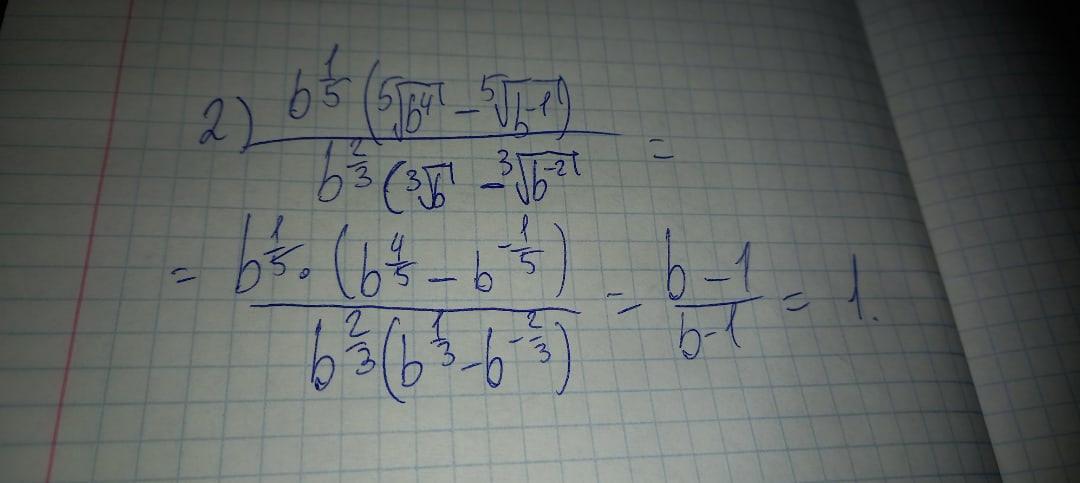 2) b^{1/5} (⁵√b⁴ - ⁵√b⁻¹)
b^{2/3} (³√b - ³√b⁻² =
= b^{1/5} · (b^{4/5} - b^{-1/5}) / b^{2/3} (b^{1/3} - b^{-2/3}) = b - 1 / b - 1 = 1.